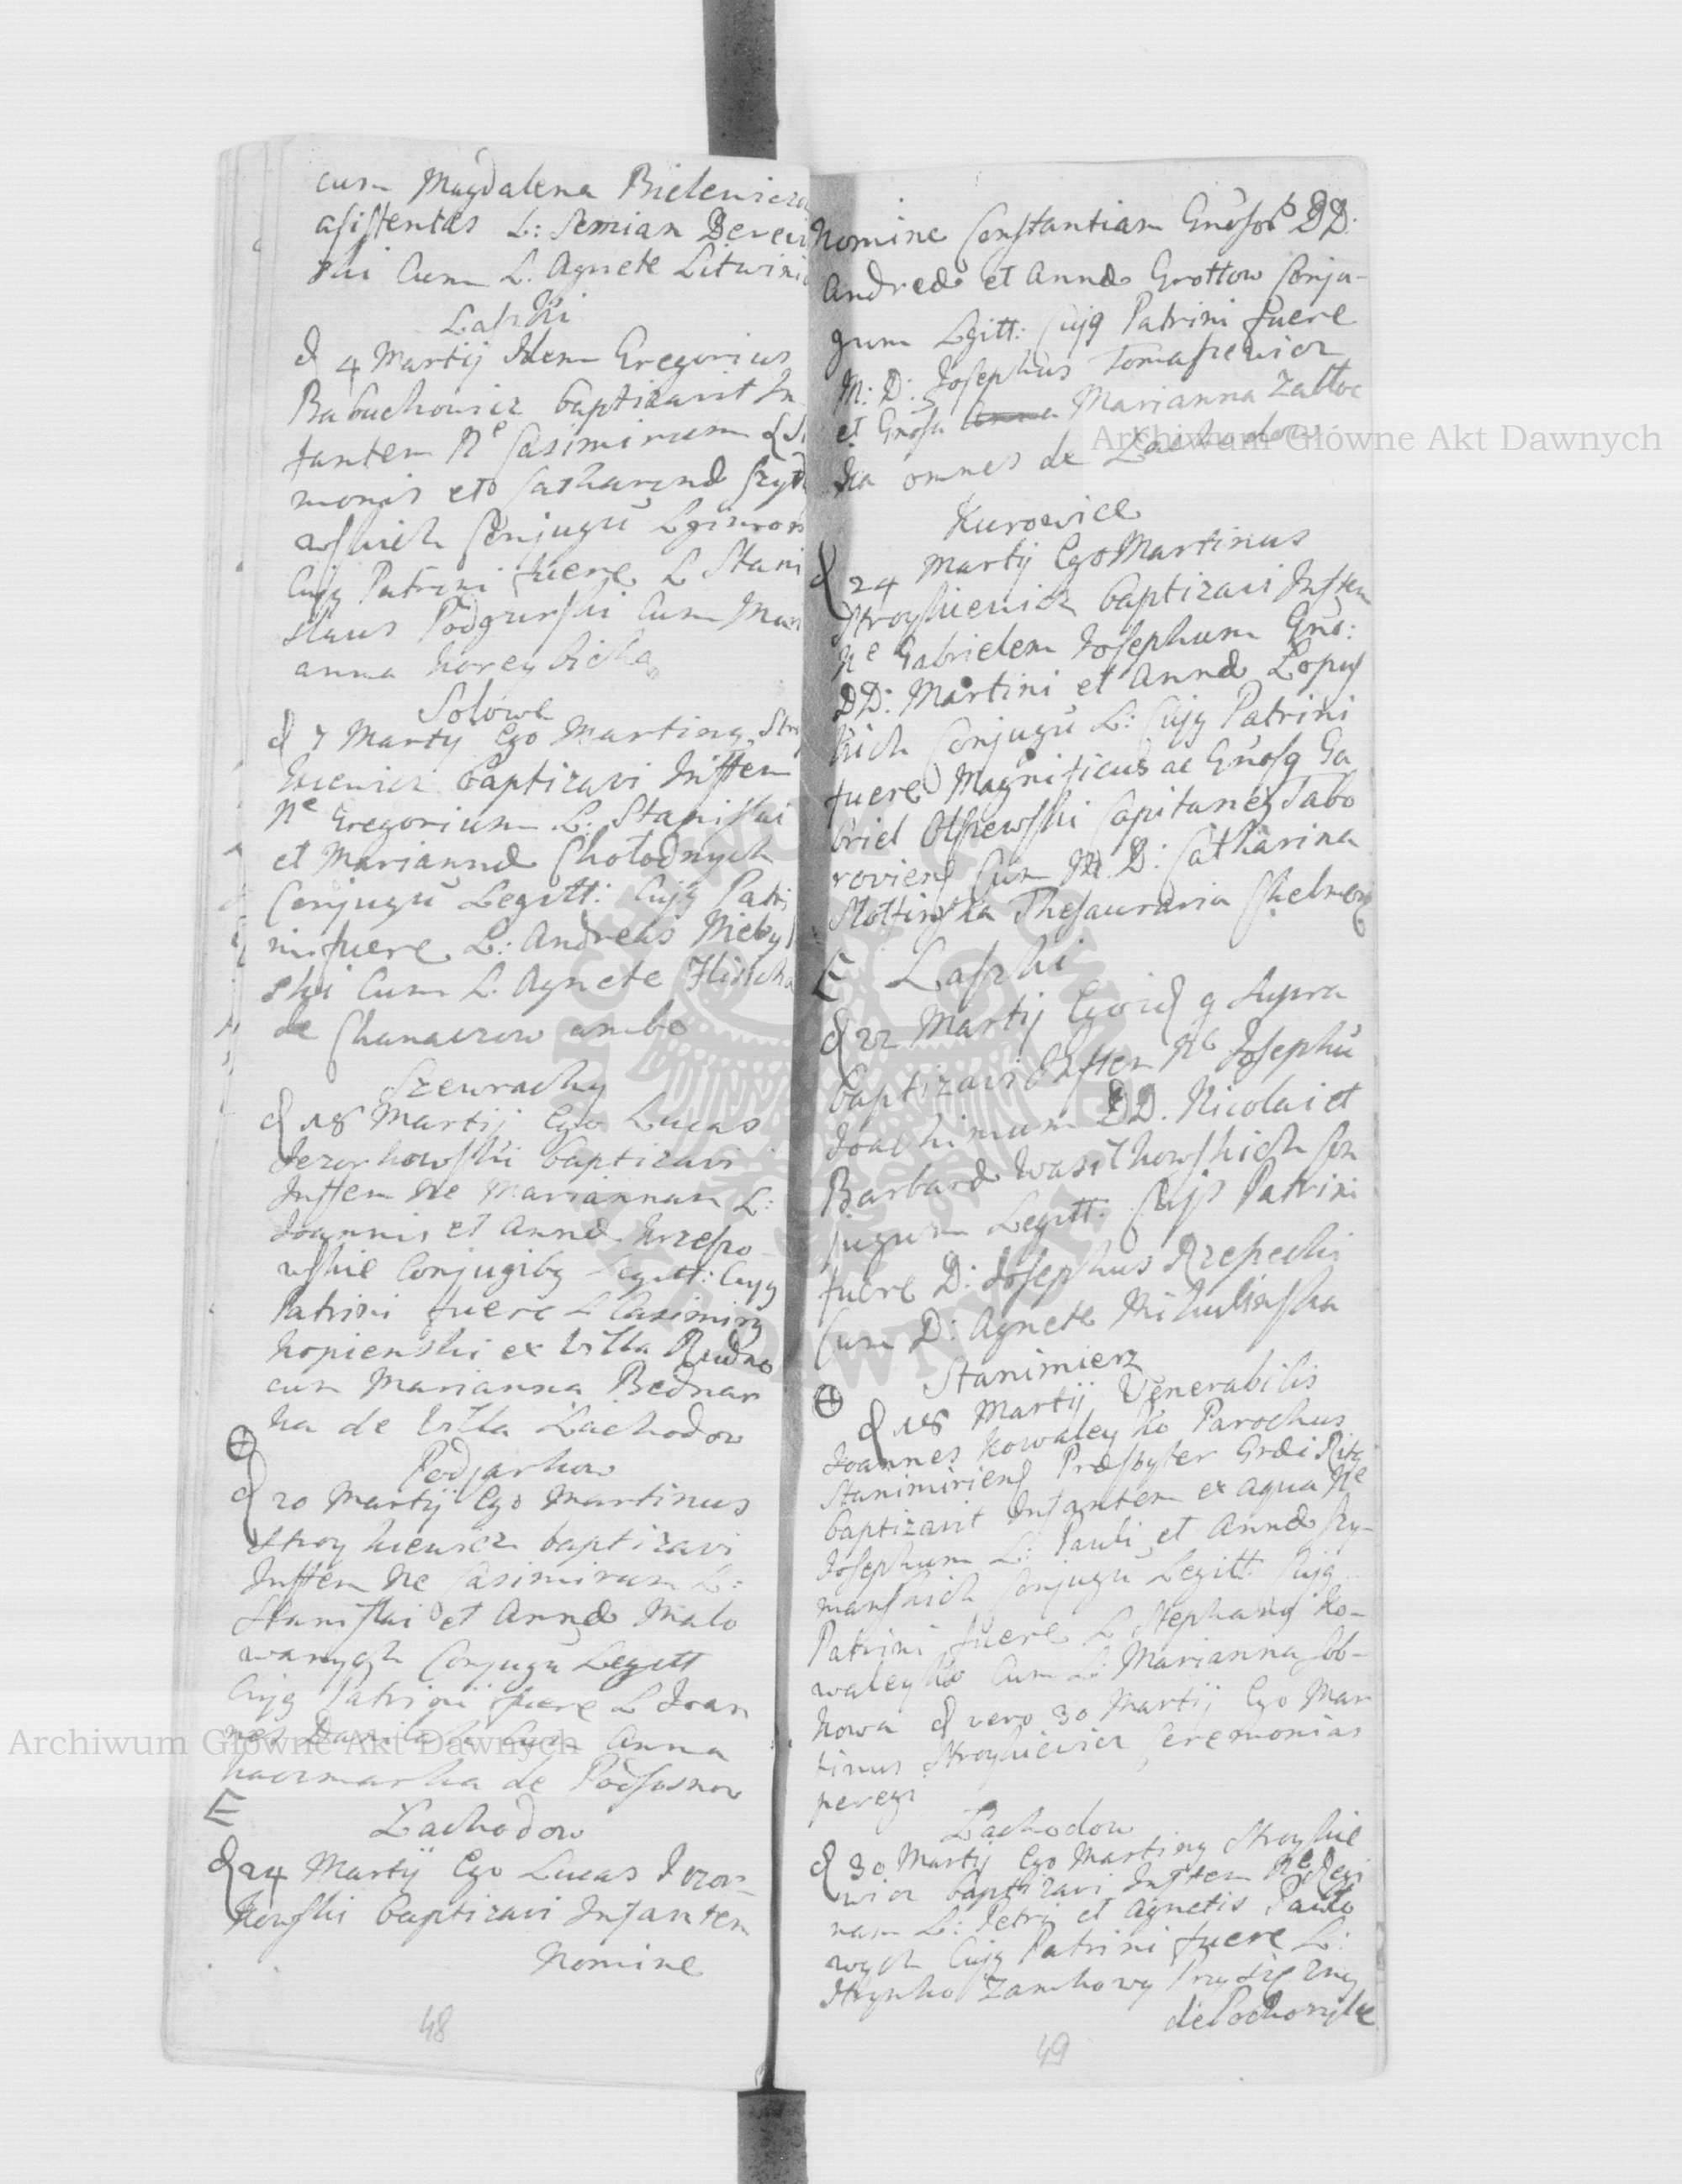 cum Magdalena Bielewiczo
asistentes L: Semian Derew
ski Cum L. Agnete Litwini
Laszki
d 4 Martij Idem Gregorius
Babuchowicz baptizavit In
fantem Ne Casimirum L Si
monis et Catharinæ Szyd
wskich Conjugū Lgimor
Cujq Patrini fuere L Stani
slaus Podgurski Cum Mari
anna
Solowe
d 7 Martij Ego Martinq Stroy
kiewicz baptizavi Inftem
Ne Gregorium L: Stanislai
et Mariannæ Chołodnych
Conjugū Legitt: Cujq Patri
ni fuere L: Andreas Nieby
ski Cum L. Agnete
de Chanaczow ambo
Szewrachy
d 18 Martij Ego Lucas
Jezorkowski baptizavi
Inftem Ne Mariannam L:
Joannis et Annæ Krzeszo
wskie Conjugibq Legitt: Cujq
Patrini fuere L Casimirq
Kopienski ex Villa Rudno
cum Marianna Bednar
ka de Villa Lachodow
Podjarkow
d 20 Martij Ego Martinus
Stroykiewicz baptizavi
Inftem Ne Casimirum L:
Stanislai et Annæ Malo
wanych Conjugū Legitt
Cujq Patrini fuere L Joan
nes Danilach Cum Anna
Kaczmarka de Podsosnow
E
Lachodow
d 24 Martij Ego Lucas Jezor
kowski baptizavi Infantem
Nomine
48
Nomine Constantiam Gnẽsor DD:
Andreæ et Annæ Grottow Conju-
gum Lgitt: Cujq Patrini fuere
M: D: Josephus Tomaszewicz
et Gnosa Marianna Zatto
ka omnes de Lachodow
Kurowice
d 24 Martij Ego Martinus
Stroykiewicz baptizavi Inftem
Ne Gabrielem Josephum Gño:
DD: Martini et Annæ Łopus
kich Conjugū L: Cujq Patrini
fuere Magnificus ac Gñosq Ga
briel Olszewski Capitaneq Tabo
roviens Cum M. D: Catharina
Slottinska Thesauraria Chelmen
E Laszki
d 22 Martij Ego id q Supra
baptizavi Inftem Ne Josephū
Joachimum DD. Nicolai et
Barbaræ Wasilkowskich Con
jugum Legitt: Cujs Patrini
fuere D: Josephus Rzepecki
Cum D: Agnete Mikulinska
Stanimierz
d 18 Martij Venerabilis
Joannes Kowaleyko Parochus
Stanimiriens Præsbyter Græi Ritq
baptizavit Infantem ex aqua Ne
Josephum L: Pauli et Annæ Szy-
manskich Conjugū Legitt: Cujq
Patrini fuere L Stephanq Ko-
waleyko Cum L: Marianna Sob-
kowa d vero 30 Martij Ego Mar
tinus Stroykiewicz Ceremonias
peregi
Lachodow
d 30 Martij Ego Martinq Stroykie
wicz baptizavi Inftem Ne Regi
nam L: Petri et Agnetis Pawlo
wych Cujq Patrini fuere L:
Hrynko Zamkowy Przysiężny
de Pochorylce
49
Archiwum Główne Akt Dawnych
Archiwum Główne Akt Dawnych